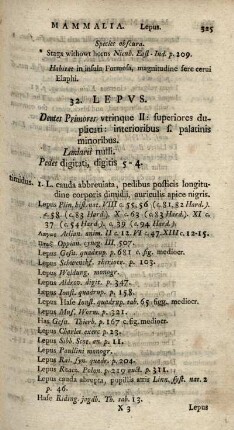 MAMMALIA. Lepus. 325
Species obscura.
* Stags without horns Nieub. East-Ind. p. 209.
Habitat in insula Formosa, magnitudine fere cervi
Elaphi.
32. LEPVS.
Dentes Primores utrinque II: superiores du-
plicati: interioribus s. palatinis
minoribus.
Laniarii nulli.
Pedes digitati, digitis 5-4.
timidus. 1. L. cauda abbreviata, pedibus posticis longitu-
dine corporis dimidii, auriculis apice nigris.
Lepus Plin, hist. nat. VIII c. 55, 56 (c. 81, 52 Hard.)
c. 58 (c. 83 Hard.) X c. 63 (c. 83 Hard.) XI c.
37 (c. 54 Hard.) c. 39 (c. 94 Hard.)
Aelian. anim. II c. 12 XIII c. 12-15.
Oppian. cyneg. III, 507.
Lepus Gesn. quadrup. p. 681 c. fig. mediocr.
Lepus Schwenckf. theriotr. p. 103.
Lepus Waldung. monogr.
Lepus Aldrov. digit. p. 347.
Lepus Ionst. quadrup. p. 158.
Lepus Hase Ionst. quadrup. tab. 65. figg. mediocr.
Lepus Mus. Worm. p. 321.
Has Gesn. Thierb. p. 167 c. fig. mediocr.
Lepus Charlet. exerc. p. 23.
Lepus Sibb. Scot. an. p. 11.
Lepus Paullini monogr.
Lepus Rai. syn. quadr. p. 204.
Lepus Rzacz. Polon. p. 219 auct. p. 311.
Lepus cauda abrupta, pupillis atris Linn. syst. nat. 2
p. 46.
Hase Riding. jagdb. Th. tab. 13.
X 3 Lepus